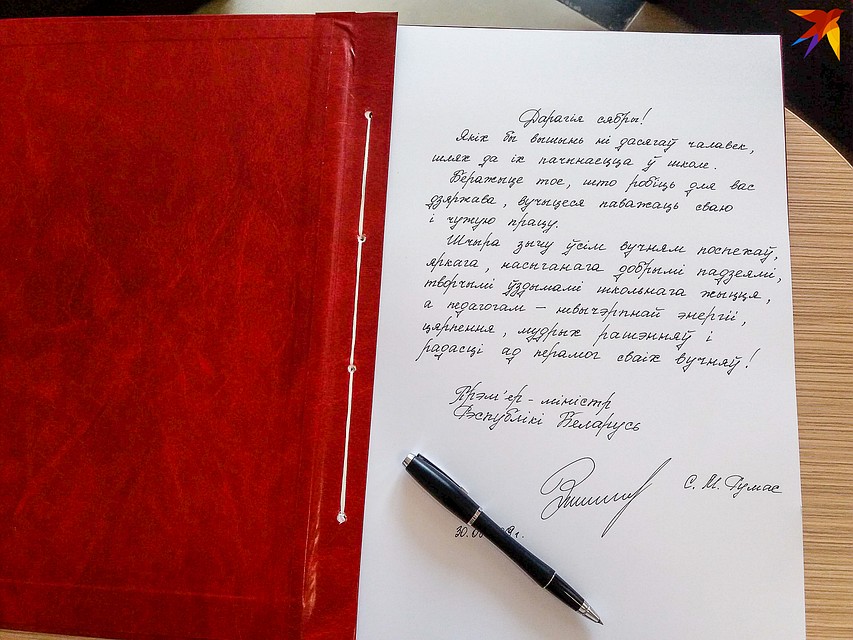 Дарагія сябры!
Якіх бы вышынь ні дасягаў чалавек,
шлях да іх пачынаецца ў школе.
Беражыце тое, што робіць для вас
дзяржава, вучыцеся паважаць сваю
і чужую працу.
Шчыра зычу ўсім вучням поспехаў,
яркага, насычанага добрымі падзеямі,
творчымі ўздымамі школьнага жыцця,
а педагогам – невычэрпнай энергіі,
цярпення, мудрых рашэнняў і
радасці ад перамог сваіх вучняў!
Прэм'ер-міністр
Рэспублікі Беларусь
С. М. Румас
30.0
9г.